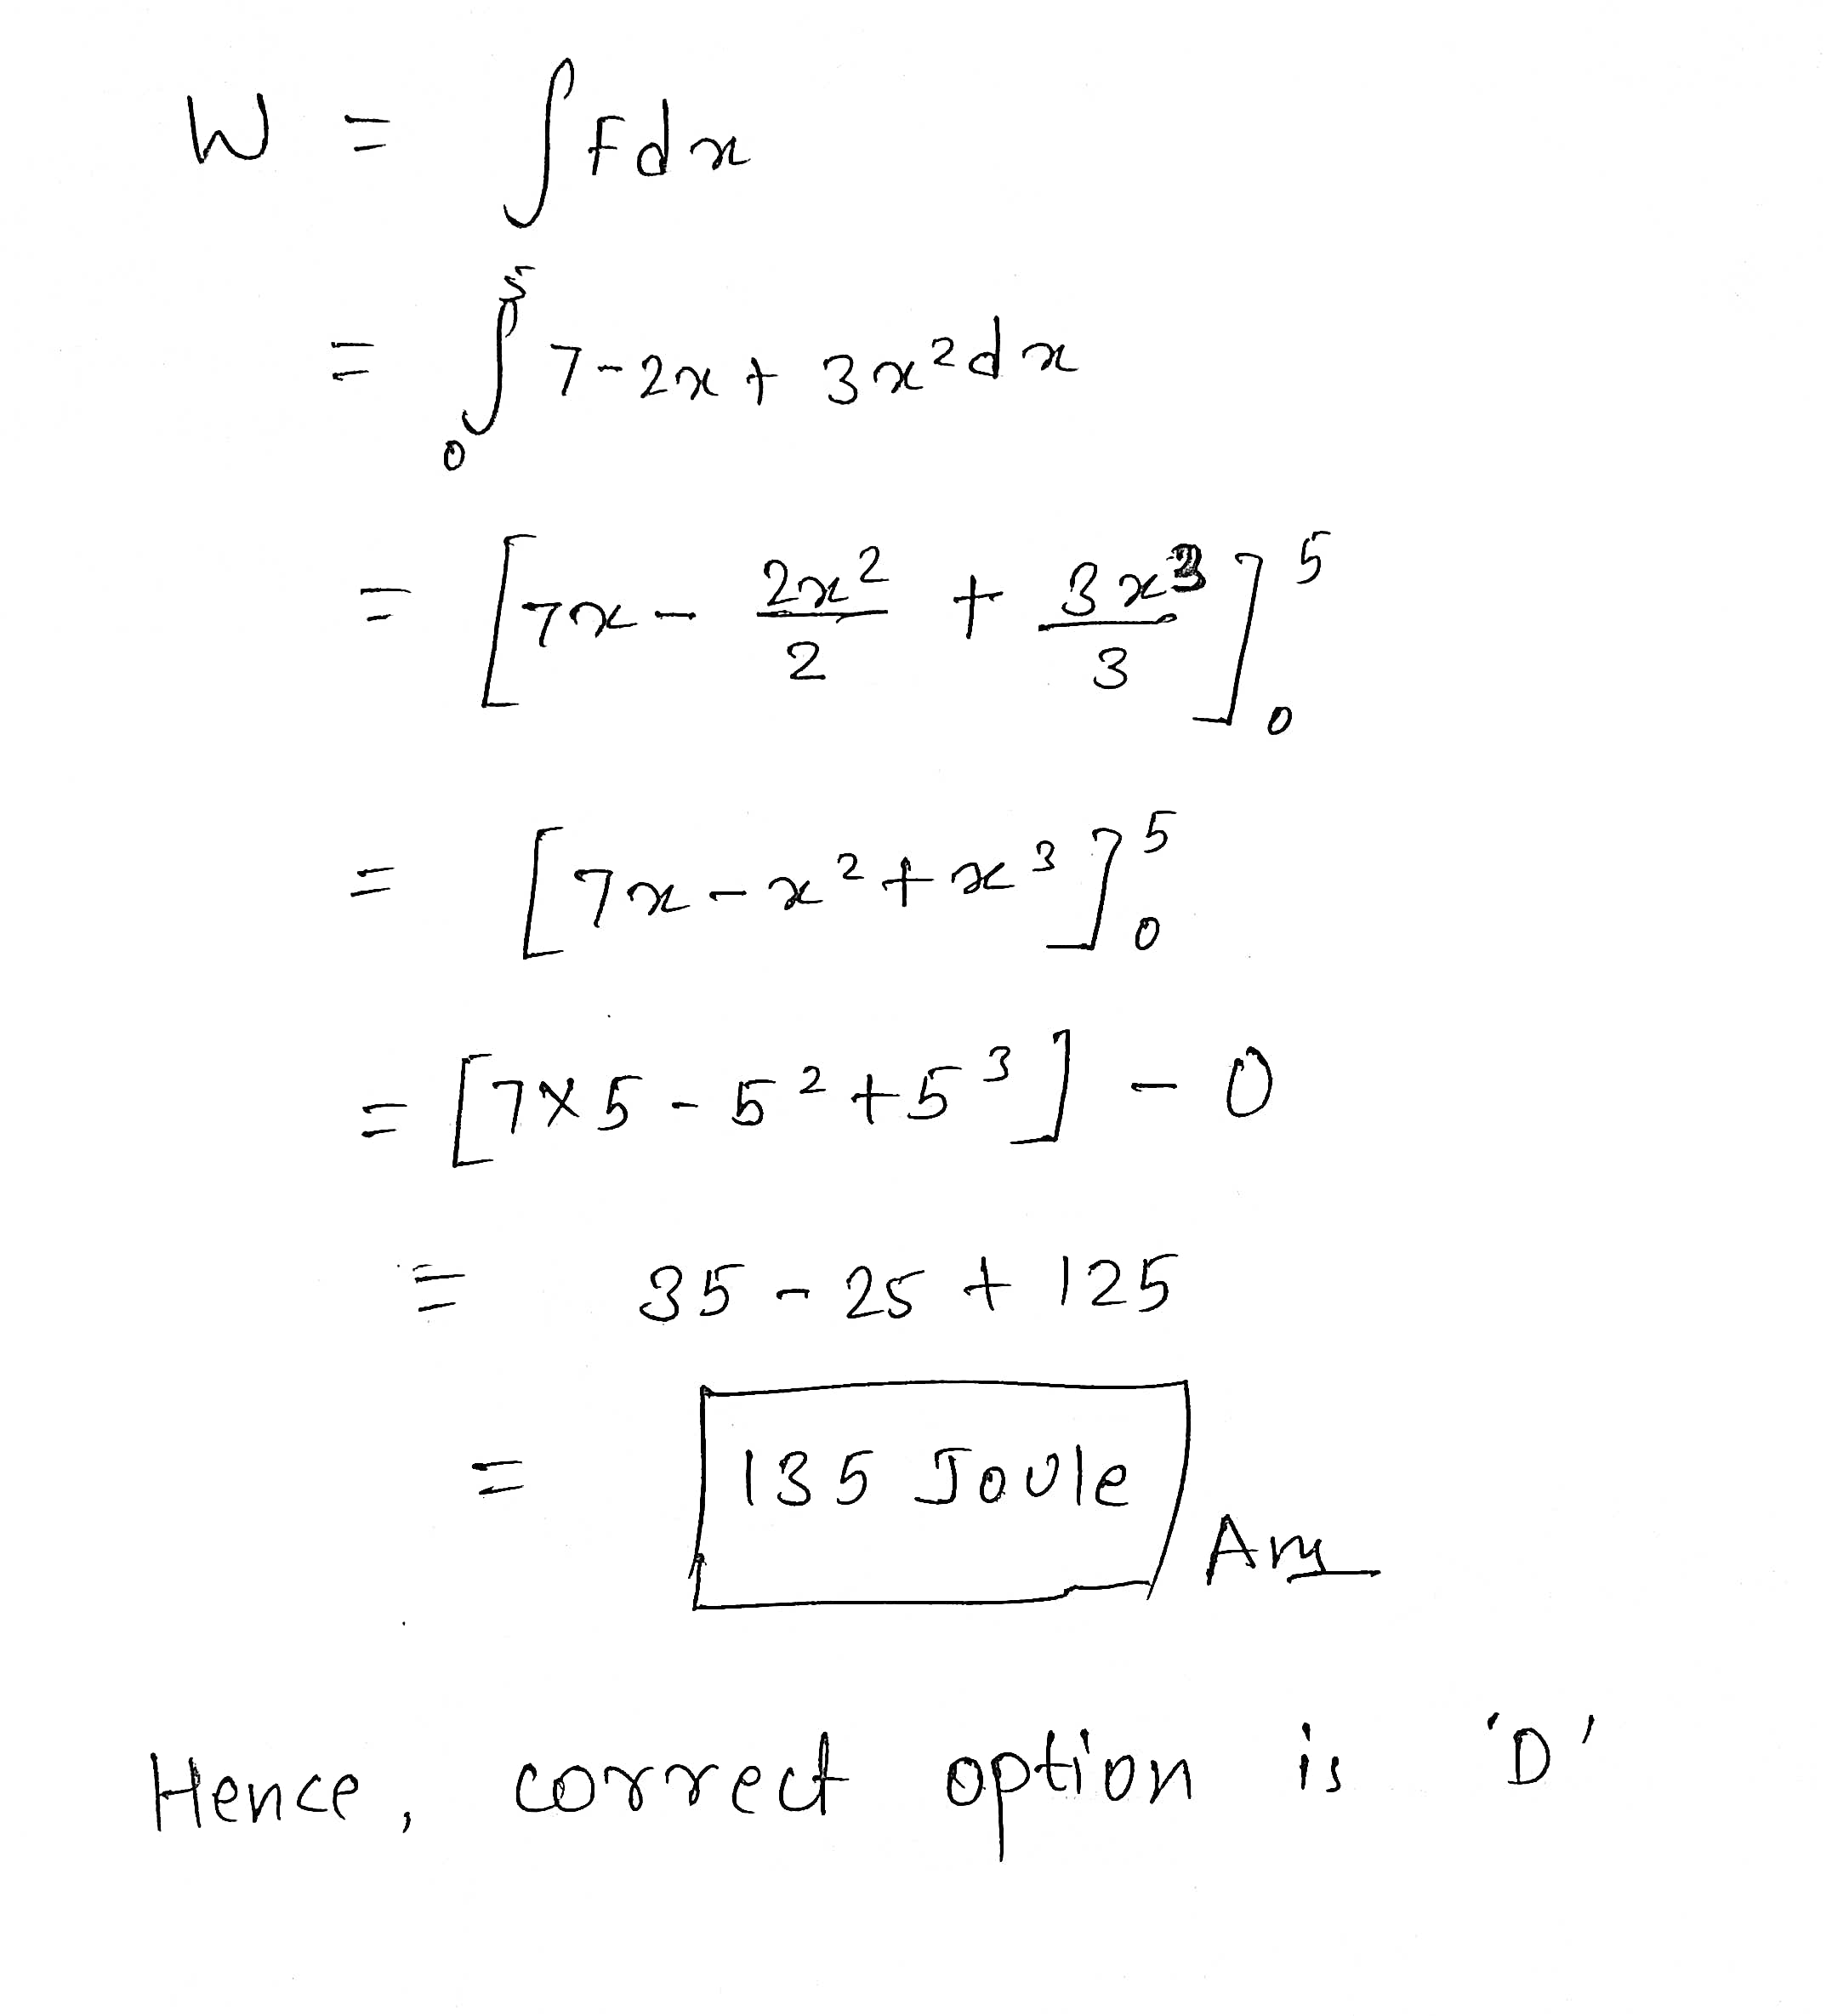 W = ∫ F dx
= ∫₀⁵ 7-2x+3x² dx
= [7x - 2x²/2 + 3x³/3]₀⁵
= [7x-x²+x³]₀⁵
= [7×5-5²+5³] - 0
= 35 - 25 + 125
= 135 Joule Ans
Hence, correct option is 'D'